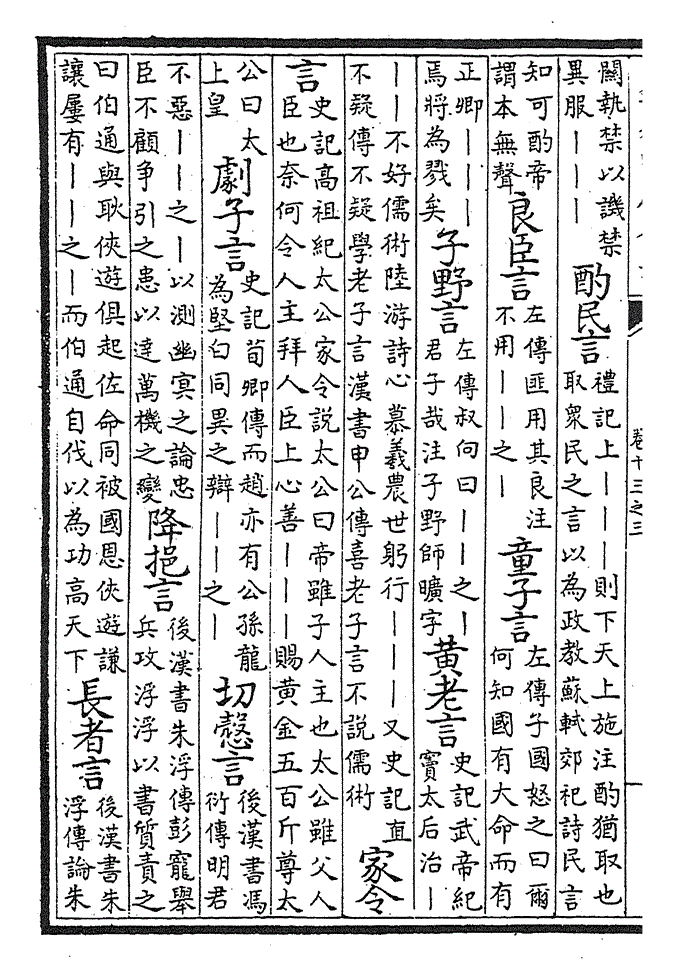 卷十三之三
關執禁以譏禁
異服｜｜｜
酌民言
禮記上｜｜｜則下天上施注酌猶取也
取衆民之言以為政教蘇軾郊祀詩民言
知可酌帝
謂本無聲
良臣言
左傳匪用其良注
不用｜｜之｜
童子言
左傳子國怒之曰爾
何知國有大命而有
正卿｜｜｜
焉將為戮矣
子野言
左傳叔向曰｜｜之｜
君子哉注子野師曠字
黃老言
史記武帝紀
竇太后治｜
｜｜不好儒術陸游詩心慕羲農世躬行｜｜｜又史記直
不疑傳不疑學老子言漢書申公傳喜老子言不説儒術
家令
言
史記高祖紀太公家令説太公曰帝雖子人主也太公雖父人
臣也奈何令人主拜人臣上心善｜｜｜賜黃金五百斤尊太
公曰太
上皇
劇子言
史記荀卿傳而趙亦有公孫龍
為堅白同異之辯｜｜之｜
切慤言
後漢書馮
衍傳明君
不惡｜｜之｜以測幽冥之論忠
臣不顧爭引之患以達萬機之變
降挹言
後漢書朱浮傳彭寵舉
兵攻浮浮以書質責之
曰伯通與耿俠遊俱起佐命同被國恩俠遊謙
讓屢有｜｜之｜而伯通自伐以為功高天下
長者言
後漢書朱
浮傳論朱